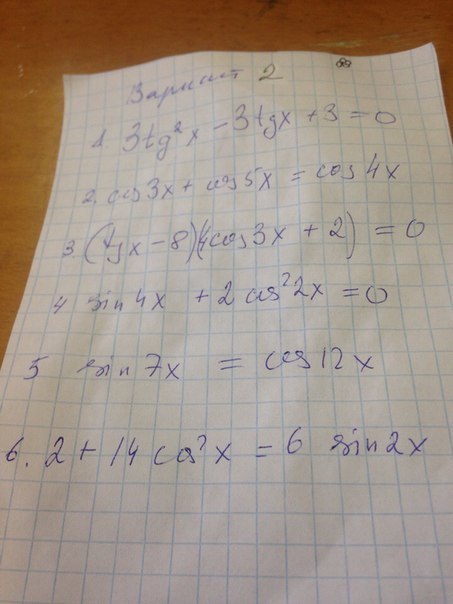 Вариант 2
1. 3tg²x - 3tgx + 3 = 0
2. cos3x + cos5x = cos4x
3. (tgx - 8)(4cos3x + 2) = 0
4 sin4x + 2cos²2x = 0
5 sin7x = cos12x
6. 2 + 14cos²x = 6 sin2x